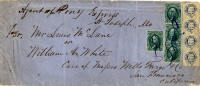 Agent of Pony Express
St Joseph, Mo
For. Mr Louis McLane
or
William H White
Care of Messrs Wells Fargo & Co
San Francisco
California